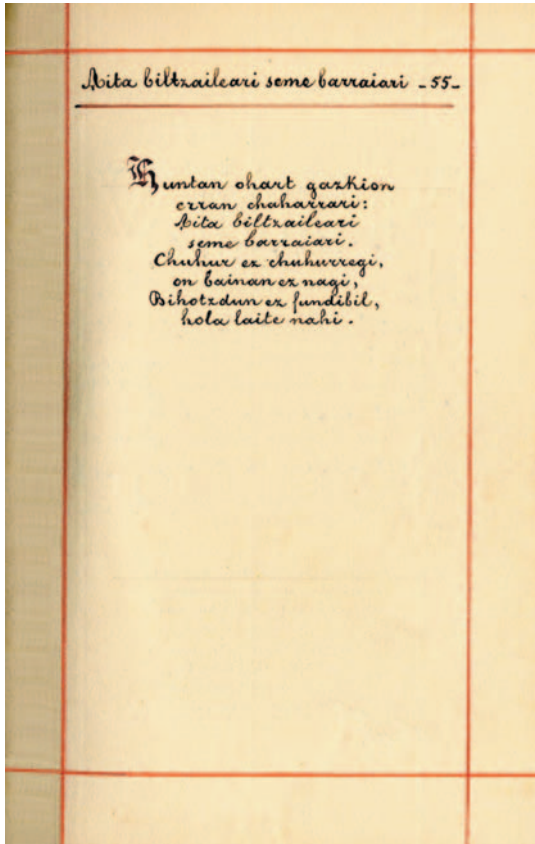 Aita biltzaileari seme barraiari -55-
Huntan ohart gazkion
erran chaharrari:
Aita biltzaileari
seme barraiari.
Chuhur ez chuhurregi,
on bainan ez nagi,
Bihotzdun ez fundibil,
hola laite nahi.